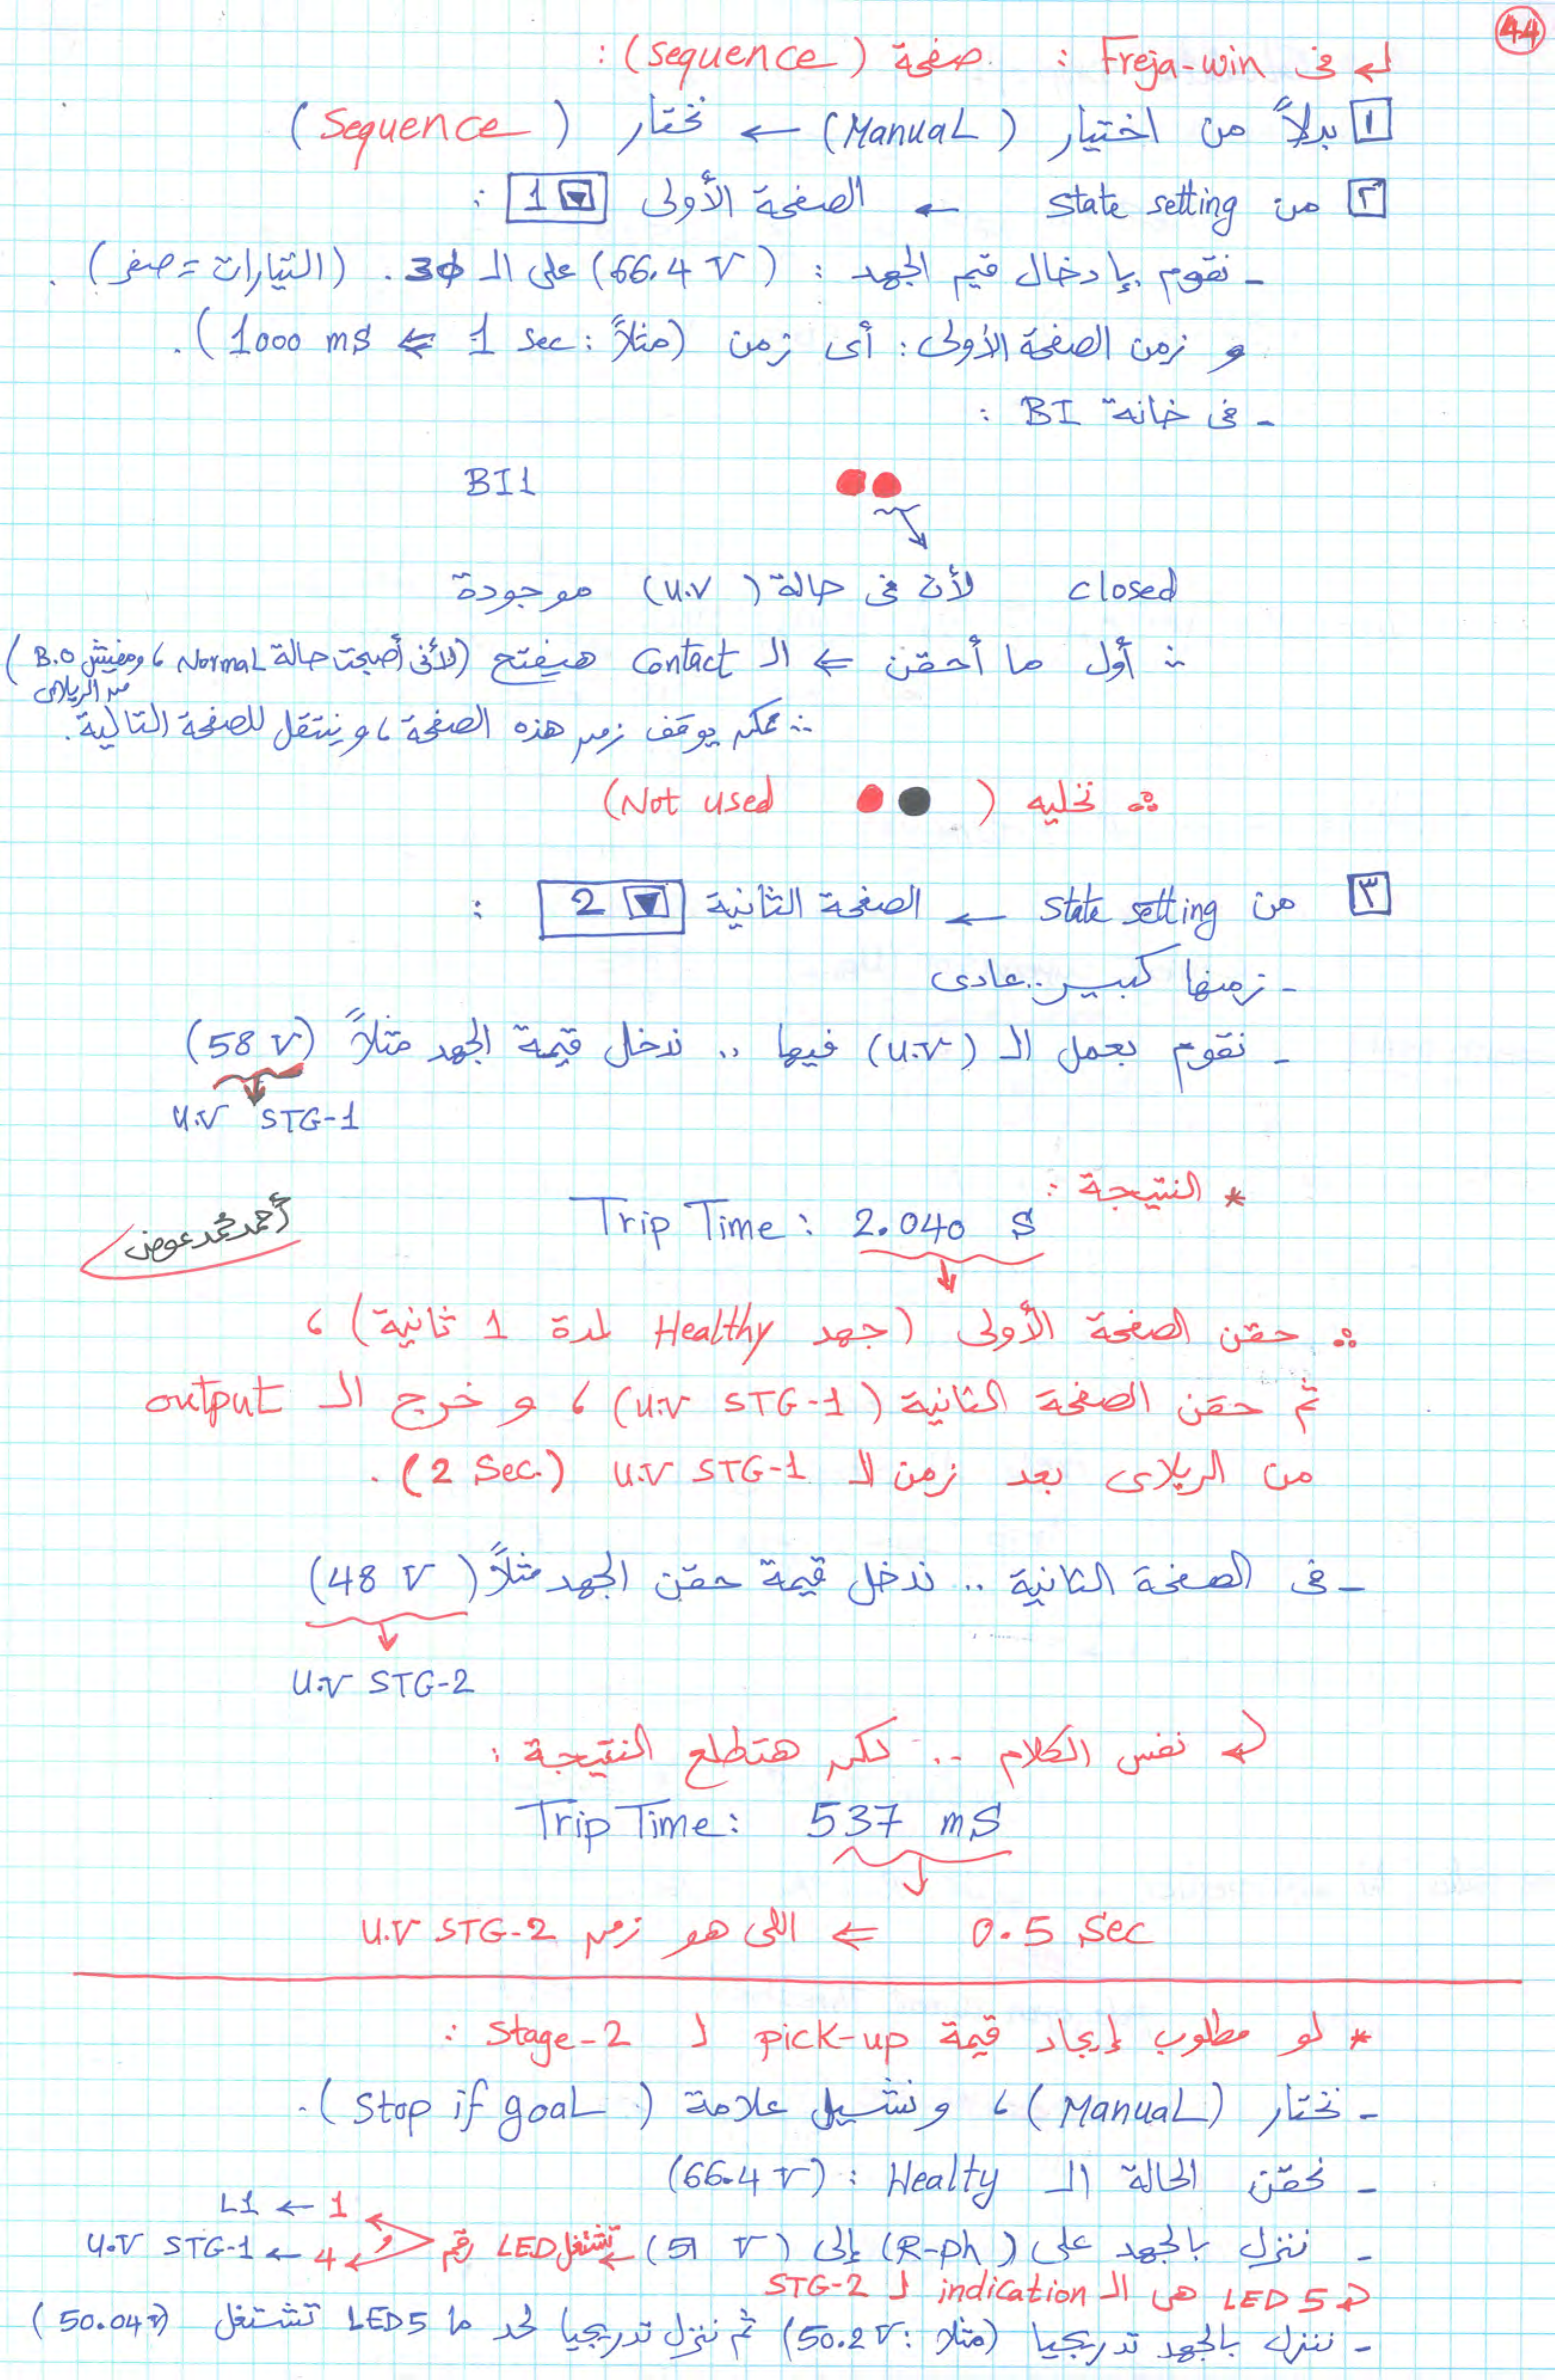 44
↲ فى Freja-win : صفحة (sequence) :
١ بدلاً من اختيار (Manual) ← نختار (Sequence)
٢ من state setting ← الصفحة الأولى 1 :
- نقوم بإدخال قيم الجهد : (66.4 V) على الـ 3φ. (التيارات = صفر).
و زمن الصفحة الأولى : أى زمن (مثلاً : 1 sec ⇐ 1000 ms).
- فى خانة BI :
BI1
closed لأن فى حالة (U.V) موجودة
∴ أول ما أحقن ⇐ الـ Contact هيفتح (لأنى أصبحت حالة Normal ، ومفيش B.O من الريلاى)
∴ ممكن يوقف زمن هذه الصفحة ، وينتقل للصفحة التالية.
∴ نخليه (Not used)
٣ من state setting ← الصفحة الثانية 2 :
- زمنها كبير .. عادى
- نقوم بعمل الـ (U.V) فيها .. ندخل قيمة الجهد مثلاً (58 V)
U.V STG-1
* النتيجة :
Trip Time : 2.040 S
أحمد محمد عوض
∴ حقن الصفحة الأولى (جهد Healthy لمدة 1 ثانية) ،
ثم حقن الصفحة الثانية (U.V STG-1) ، و خرج الـ output
من الريلاى بعد زمن الـ U.V STG-1 (2 Sec.).
- فى الصفحة الثانية .. ندخل قيمة حقن الجهد مثلاً (48 V)
U.V STG-2
↲ نفس الكلام .. لكن هتطلع النتيجة :
Trip Time : 537 mS
0.5 Sec ⇐ اللى هو زمن U.V STG-2
* لو مطلوب إيجاد قيمة pick-up لـ Stage-2 :
- نختار (Manual) ، ونشيل علامة (Stop if goal).
- نحقن الحالة الـ Healty : (66.4 V)
- ننزل بالجهد على (R-ph) إلى (51 V) ← تشتغل LED رقم 1 ← L1 و 4 ← U.V STG-1
↲ LED 5 هى الـ indication لـ STG-2
- ننزل بالجهد تدريجيا (مثلا : 50.2 V) ثم ننزل تدريجيا لحد ما LED5 تشتغل (50.04 V)